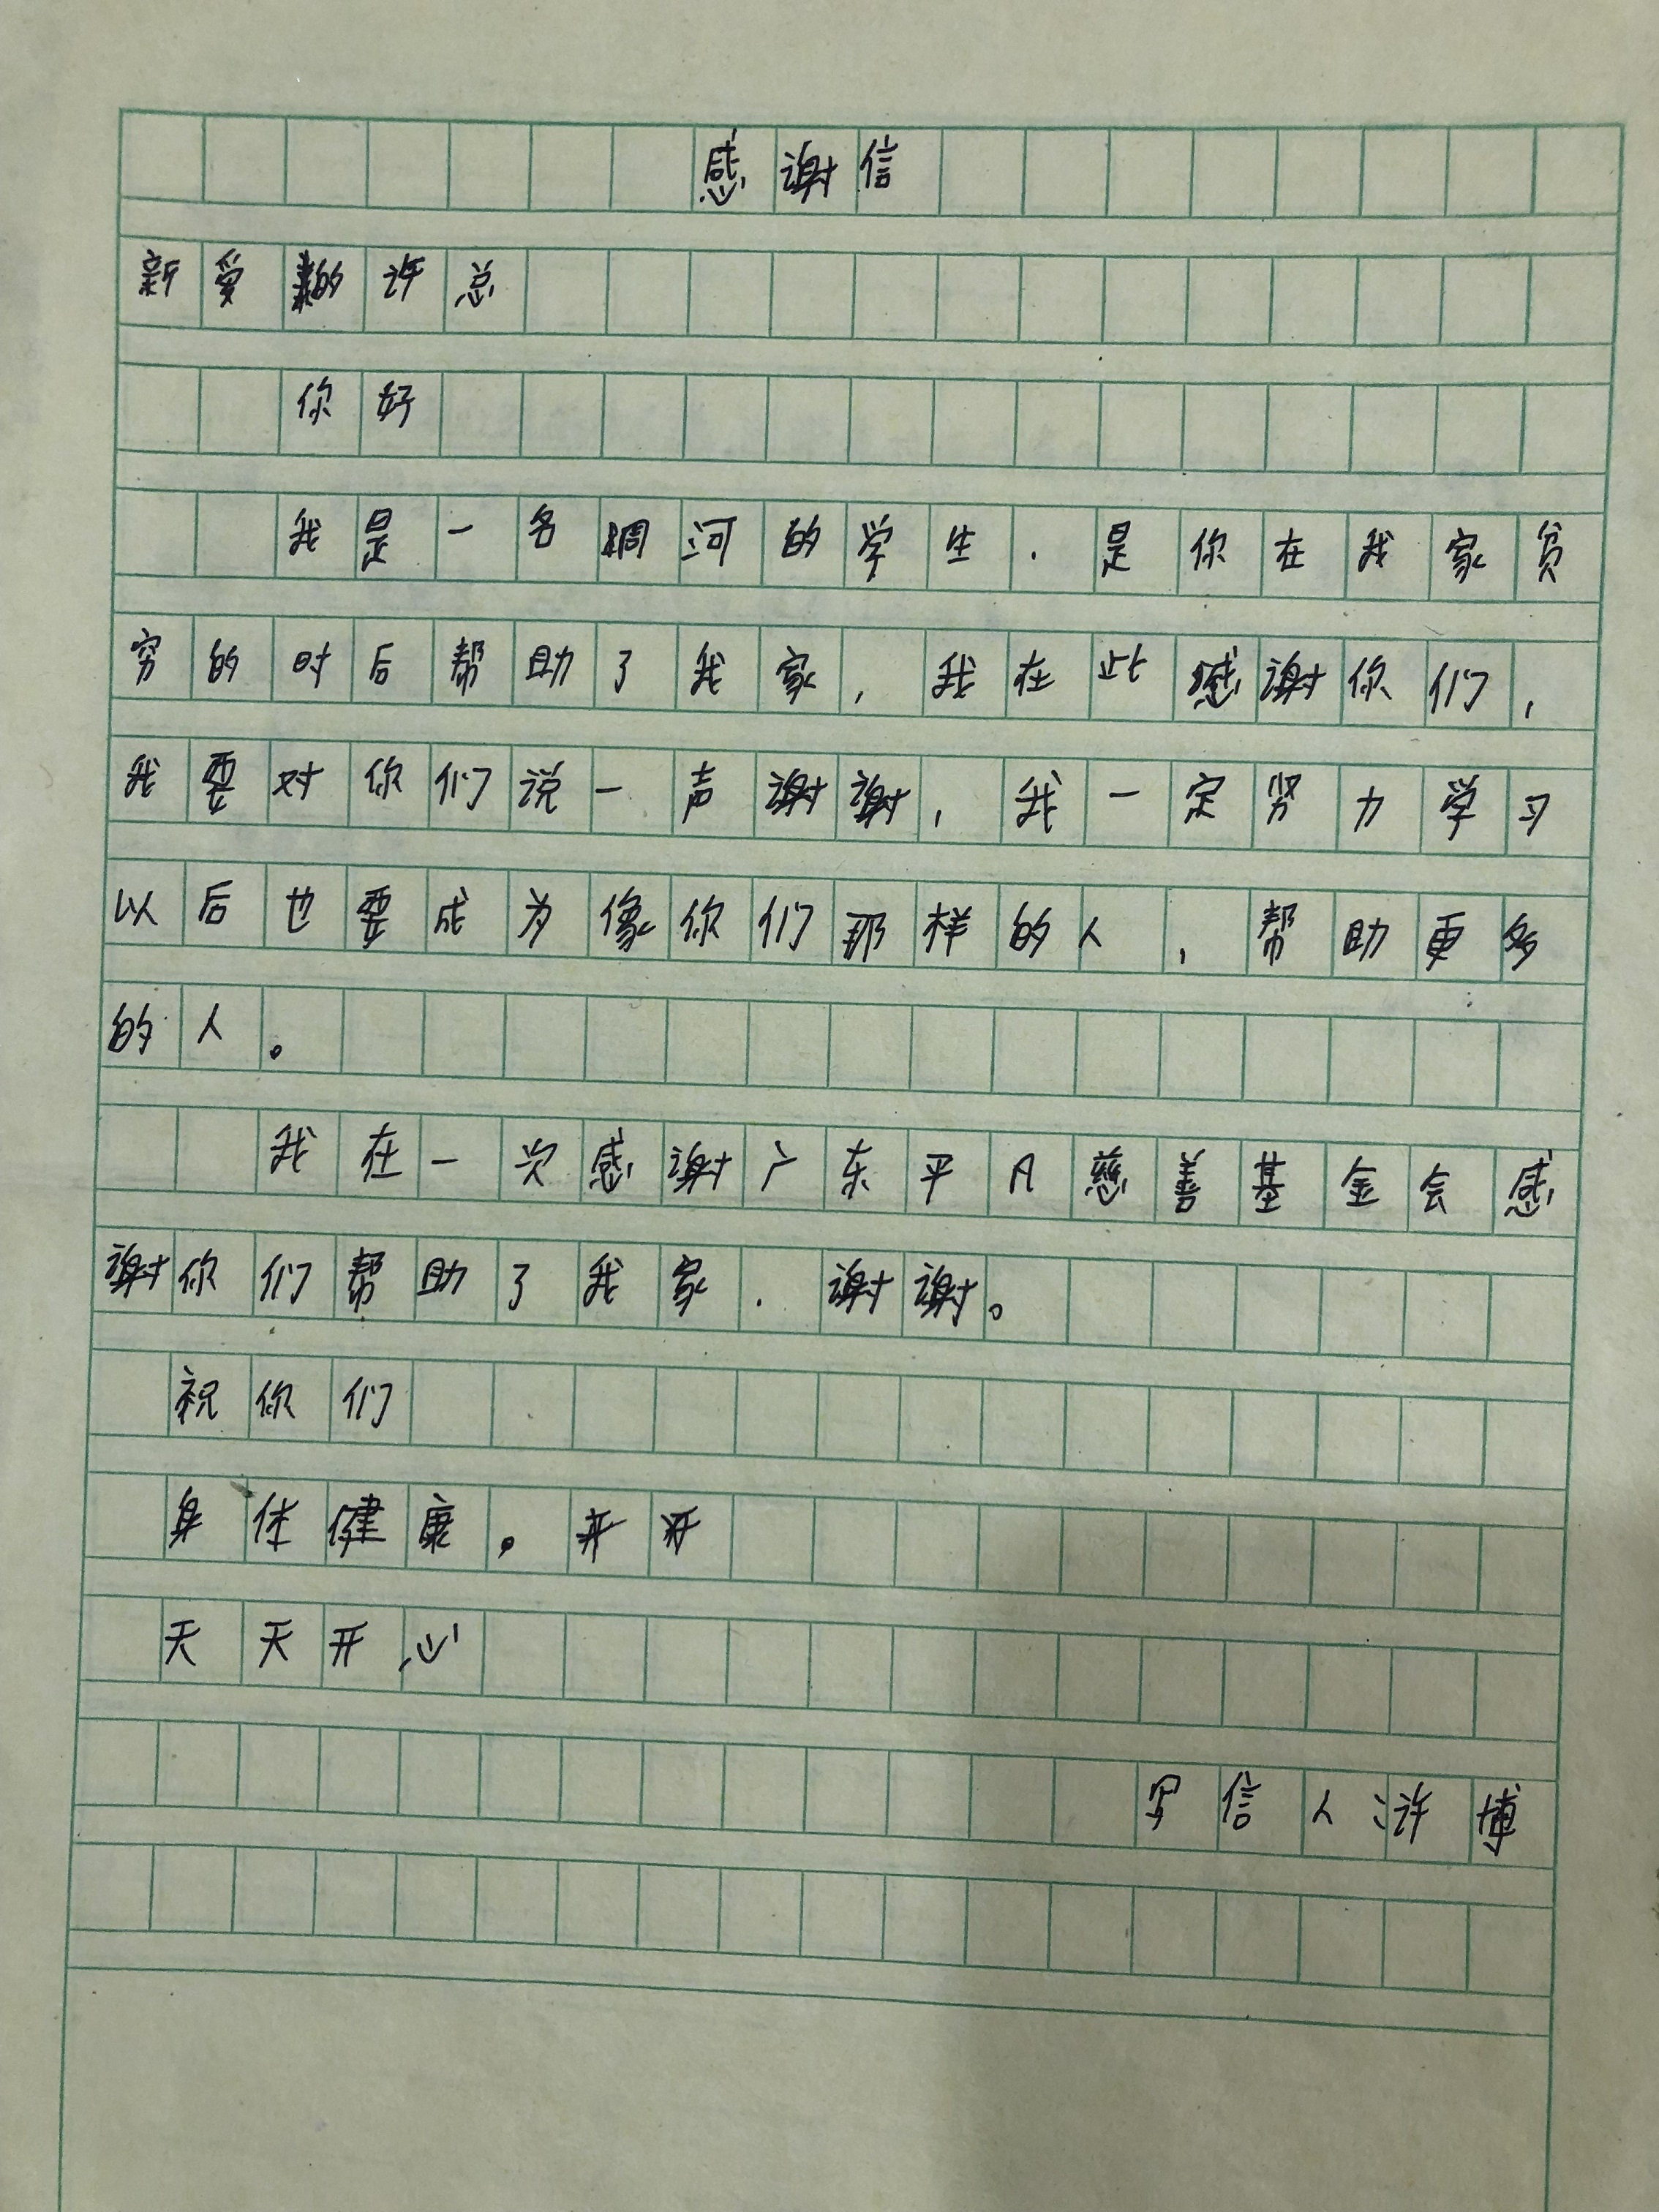 感谢信
新爱的许总
你好
我是一名调河的学生.是你在我家贫
穷的时后帮助了我家,我在此感谢你们,
我要对你们说一声谢谢,我一定努力学习
以后也要成为像你们那样的人,帮助更多
的人。
我在一次感谢广东平凡慈善基金会感
谢你们帮助了我家.谢谢。
祝你们
身体健康。
天天开心
写信人:许博